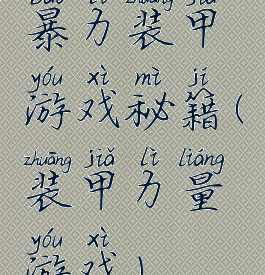 bào lì zhuāng jiǎ
暴力装甲
yóu xì mì jí
游戏秘籍(
zhuāng jiǎ lì liáng
装甲力量
yóu xì
游戏)